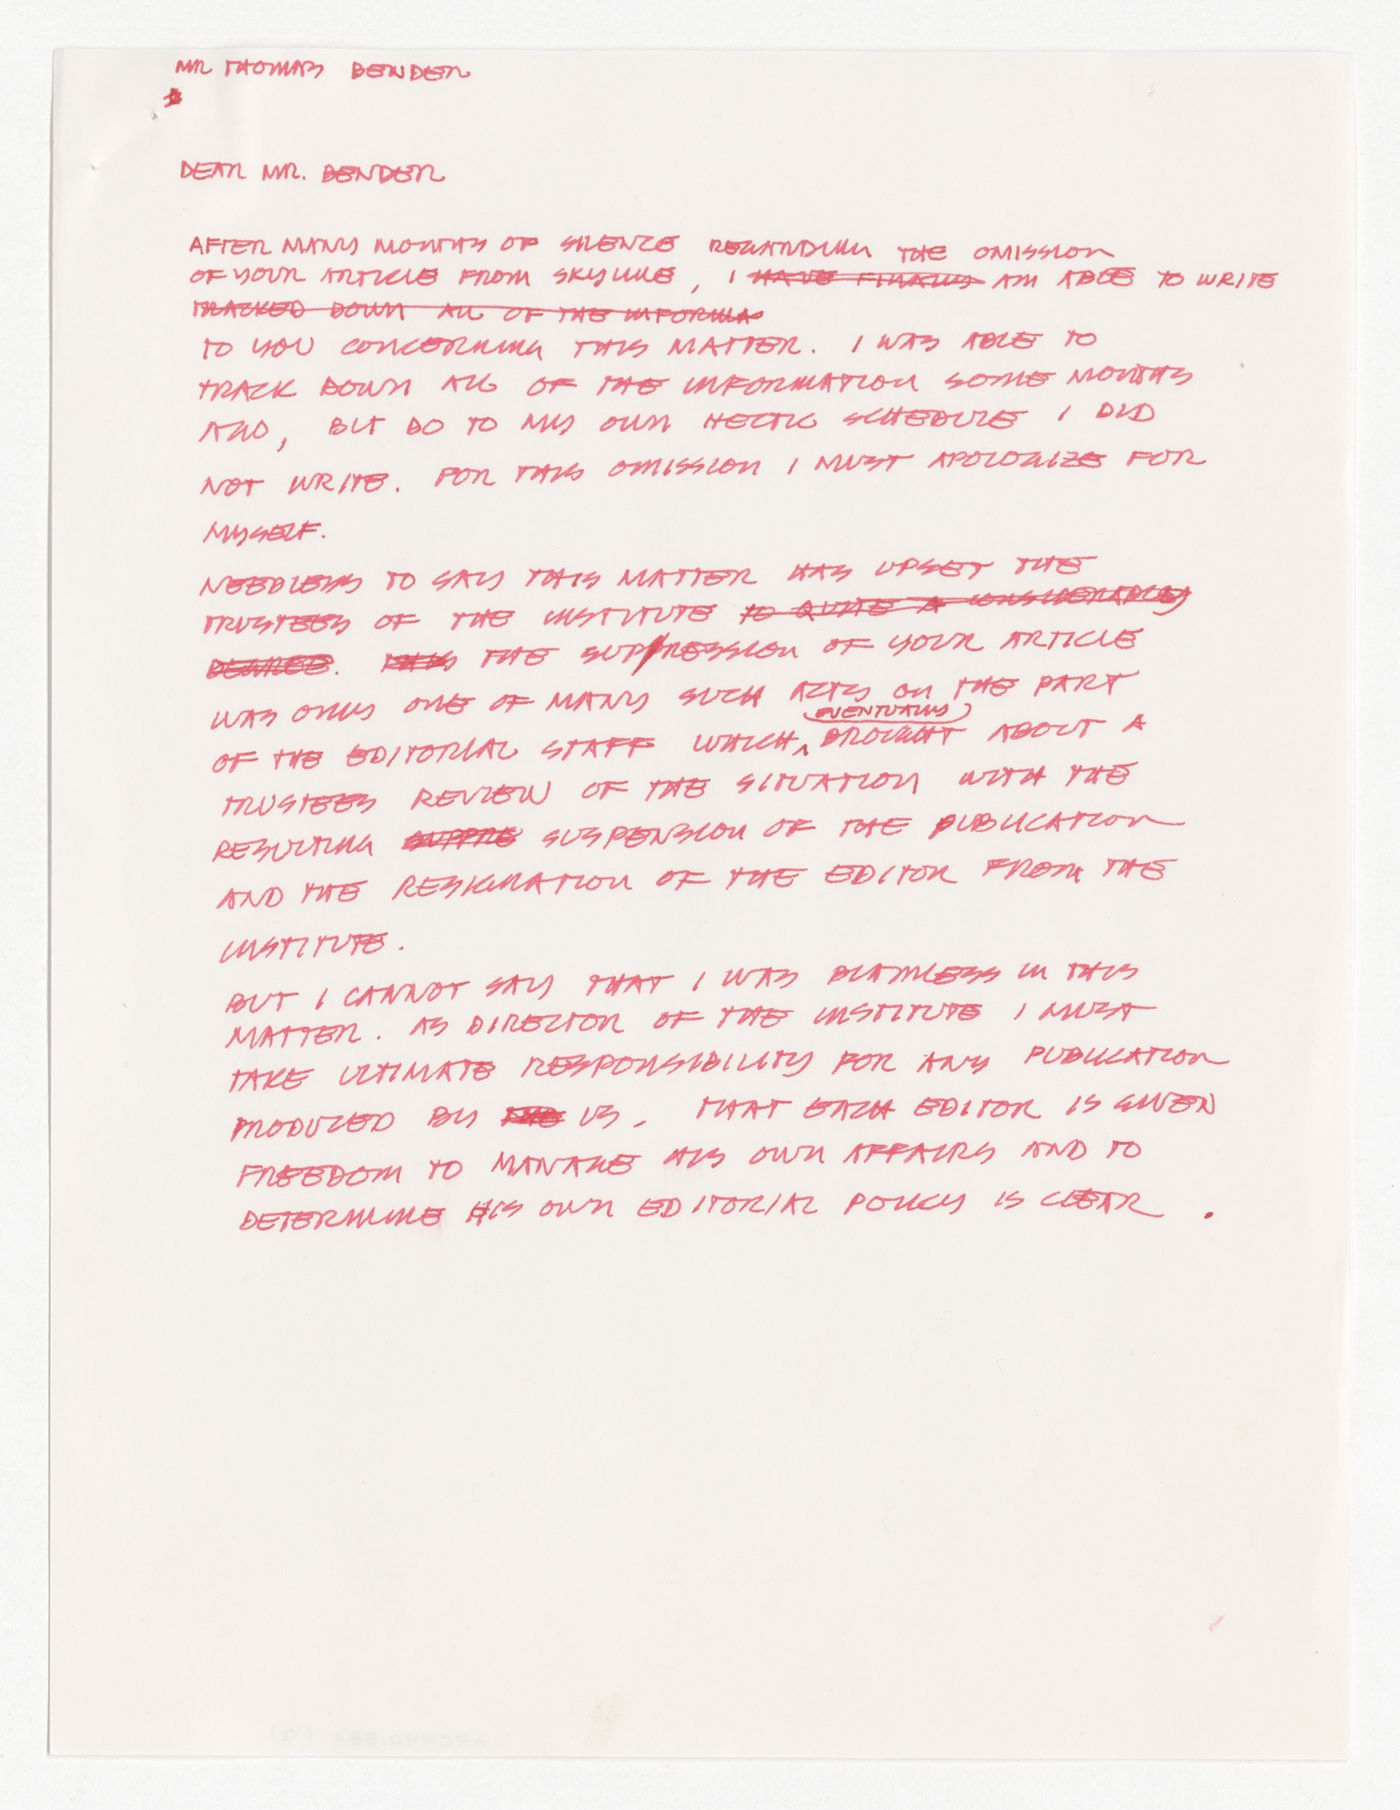 MR THOMAS BENDER
DEAR MR. BENDER
AFTER MANY MONTHS OF SILENCE REGARDING THE OMISSION
OF YOUR ARTICLE FROM SKYLINE, I HAVE FINALLY AM ABLE TO WRITE
TRACKED DOWN ALL OF THE INFORMA
TO YOU CONCERNING THIS MATTER. I WAS ABLE TO
TRACK DOWN ALL OF THE INFORMATION SOME MONTHS
AGO, BUT DO TO MY OWN HECTIC SCHEDULE I DID
NOT WRITE. FOR THIS OMISSION I MUST APOLOGIZE FOR
MYSELF.
NEEDLESS TO SAY THIS MATTER HAS UPSET THE
TRUSTEES OF THE INSTITUTE TO QUITE A CONSIDERABLY
DEGREE. THIS THE SUPPRESSION OF YOUR ARTICLE
WAS ONLY ONE OF MANY SUCH ACTS ON THE PART
EVENTUALLY
OF THE EDITORIAL STAFF WHICH BROUGHT ABOUT A
TRUSTEES REVIEW OF THE SITUATION WITH THE
RESULTING SUPPRE SUSPENSION OF THE PUBLICATION
AND THE RESIGNATION OF THE EDITOR FROM THE
INSTITUTE.
BUT I CANNOT SAY THAT I WAS BLAMLESS IN THIS
MATTER. AS DIRECTOR OF THE INSTITUTE I MUST
TAKE ULTIMATE RESPONSIBILITY FOR ANY PUBLICATION
PRODUCED BY THE US. THAT EACH EDITOR IS GIVEN
FREEDOM TO MANAGE HIS OWN AFFAIRS AND TO
DETERMINE HIS OWN EDITORIAL POLICY IS CLEAR.